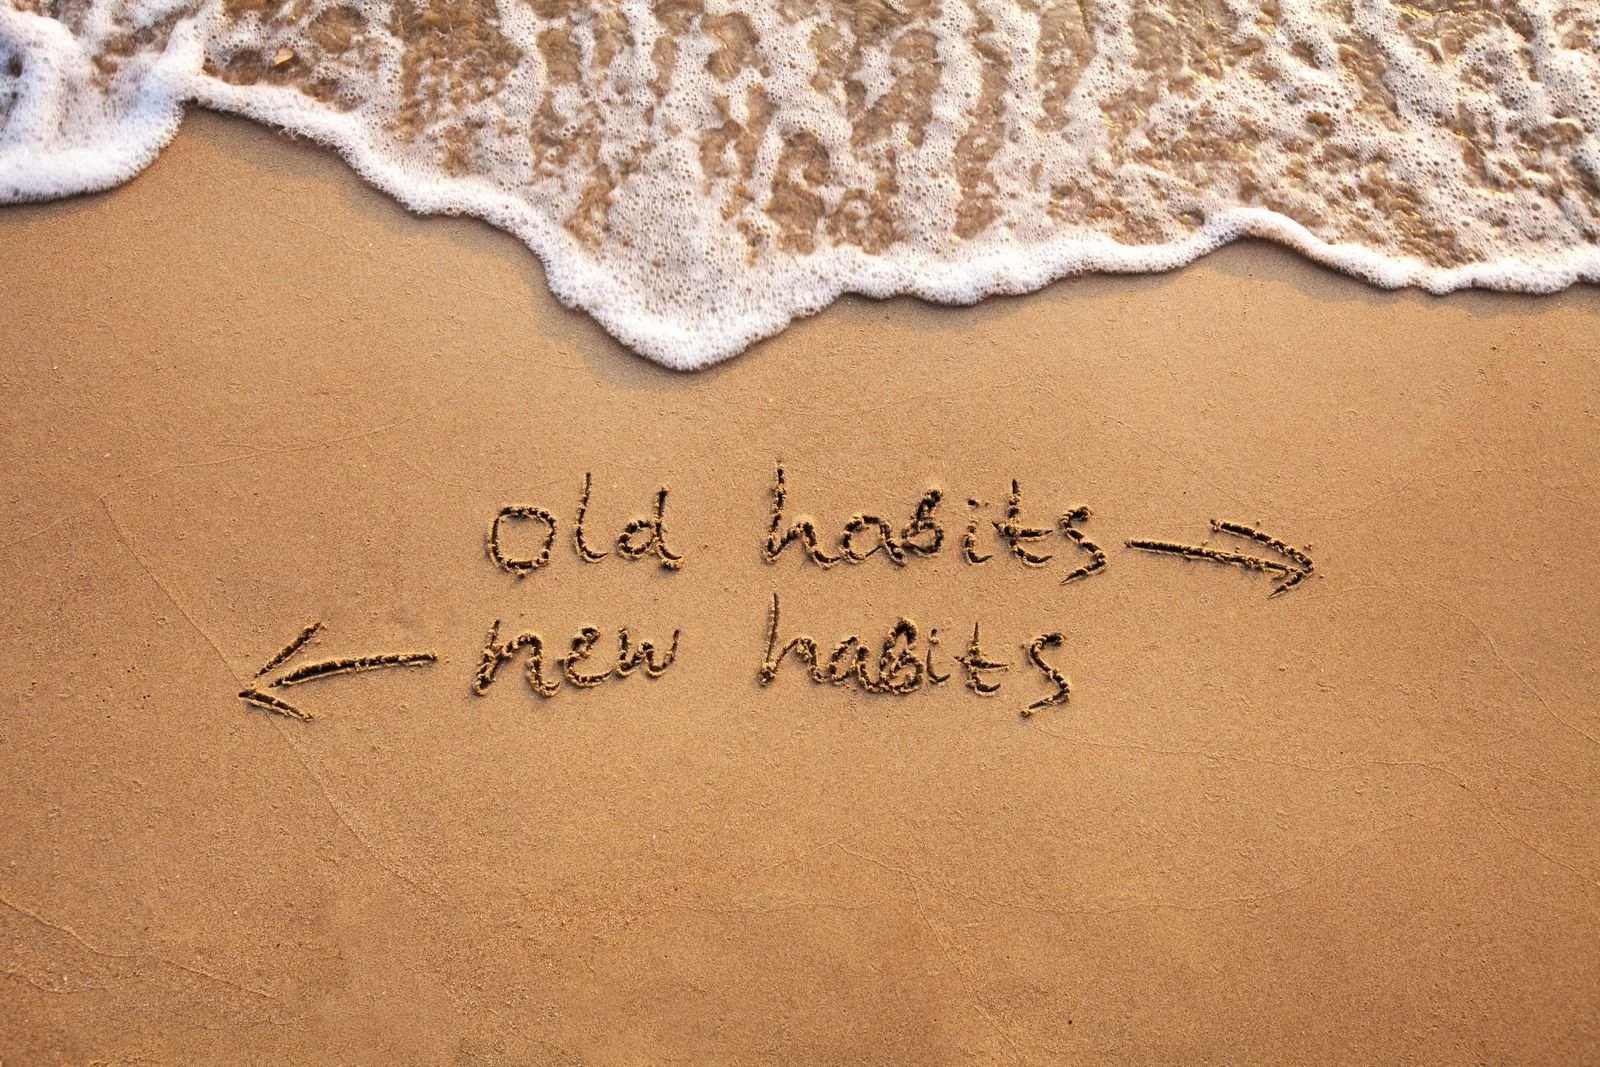 old habits →
← new habits